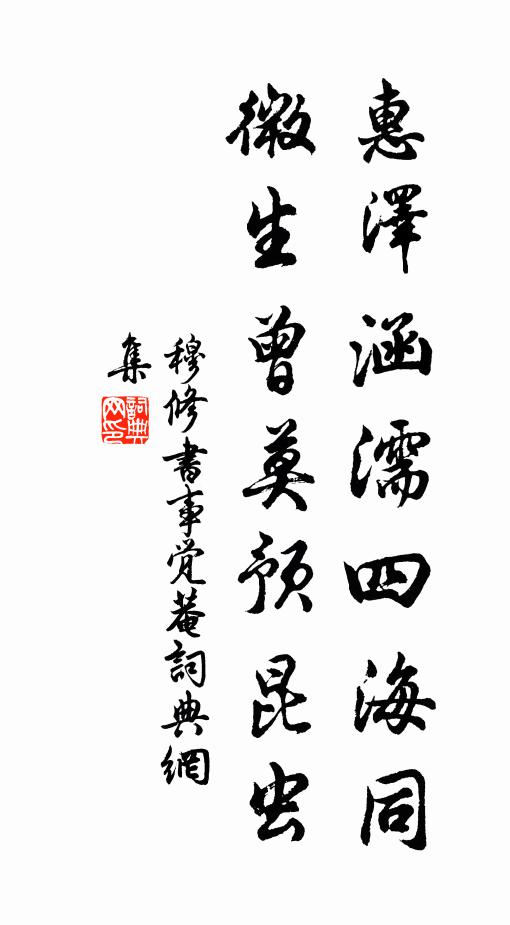 惠澤涵濡四海同
微生曾莫預昆虫
穆修書事觉菴詞典網
集
詞典
网印